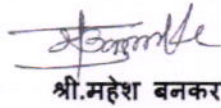 श्री.महेश बनकर